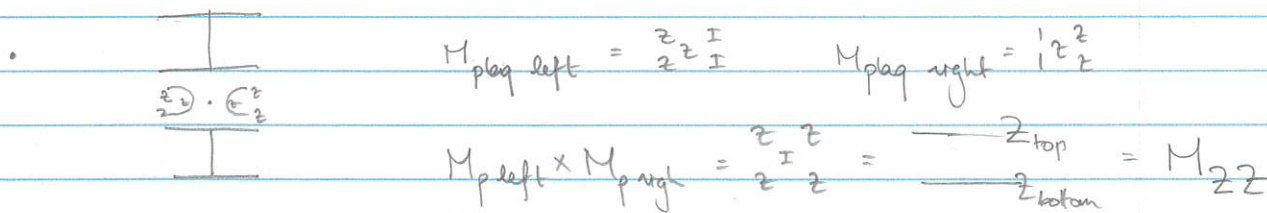 M plaq left = Z Z I Z I M plaq right = I Z Z I Z
Z Z Z · Z Z Z
M p left × M p righ = Z Z I Z Z = Z top Z bottom = M ZZ